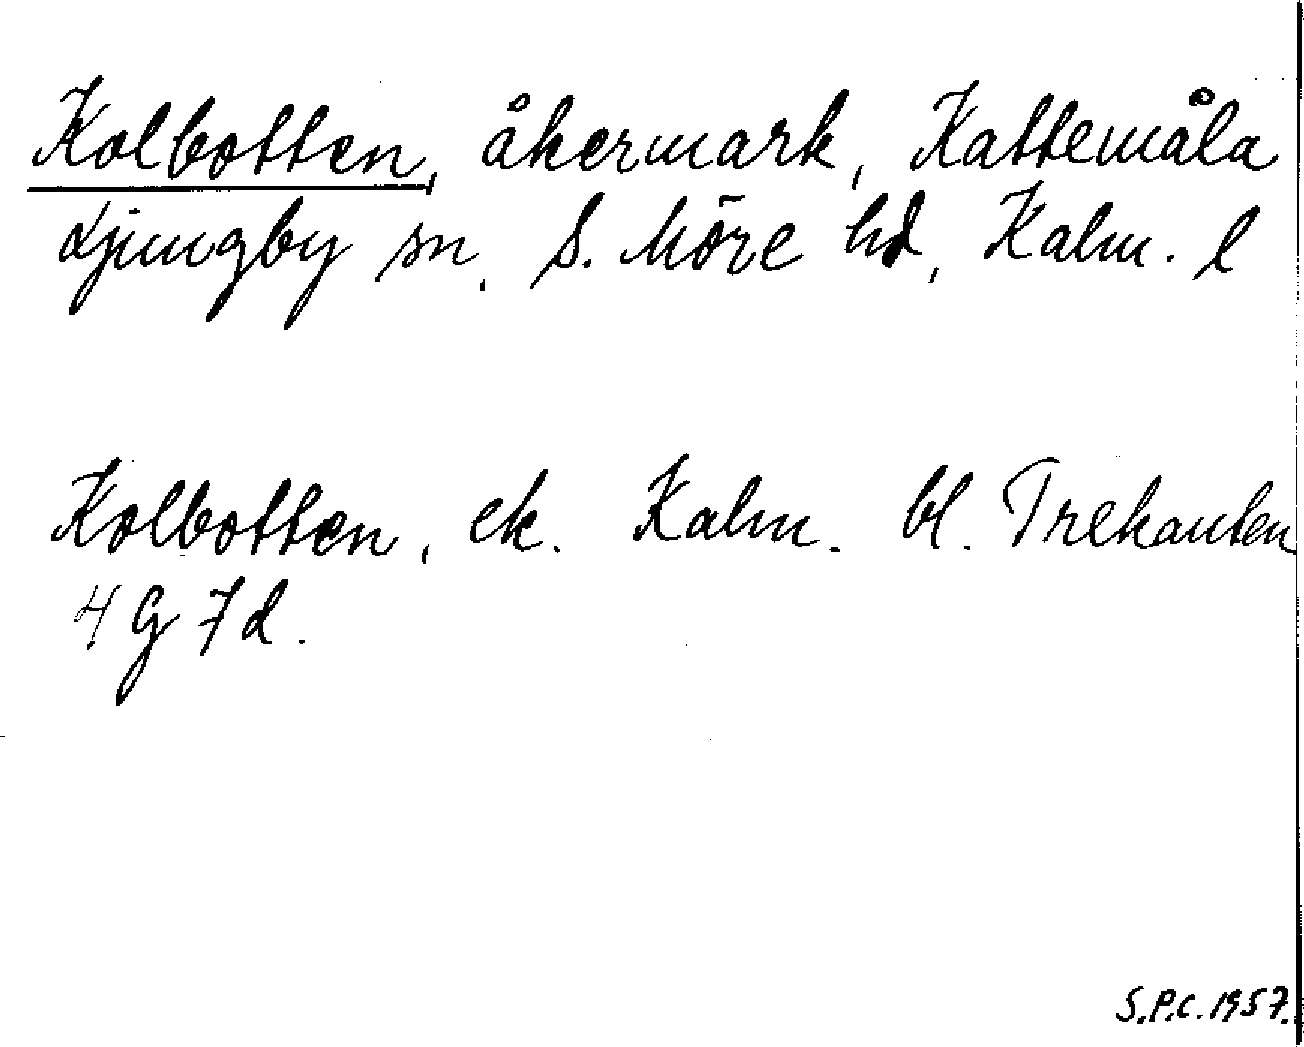 Kolbotten, åkermark, Kattemåla
Ljungby sn, S. Möre hd, Kalm. l
Kolbotten, ek. Kalm. bl. Trekanten
4 G 7d.
S.P.C. 1957.